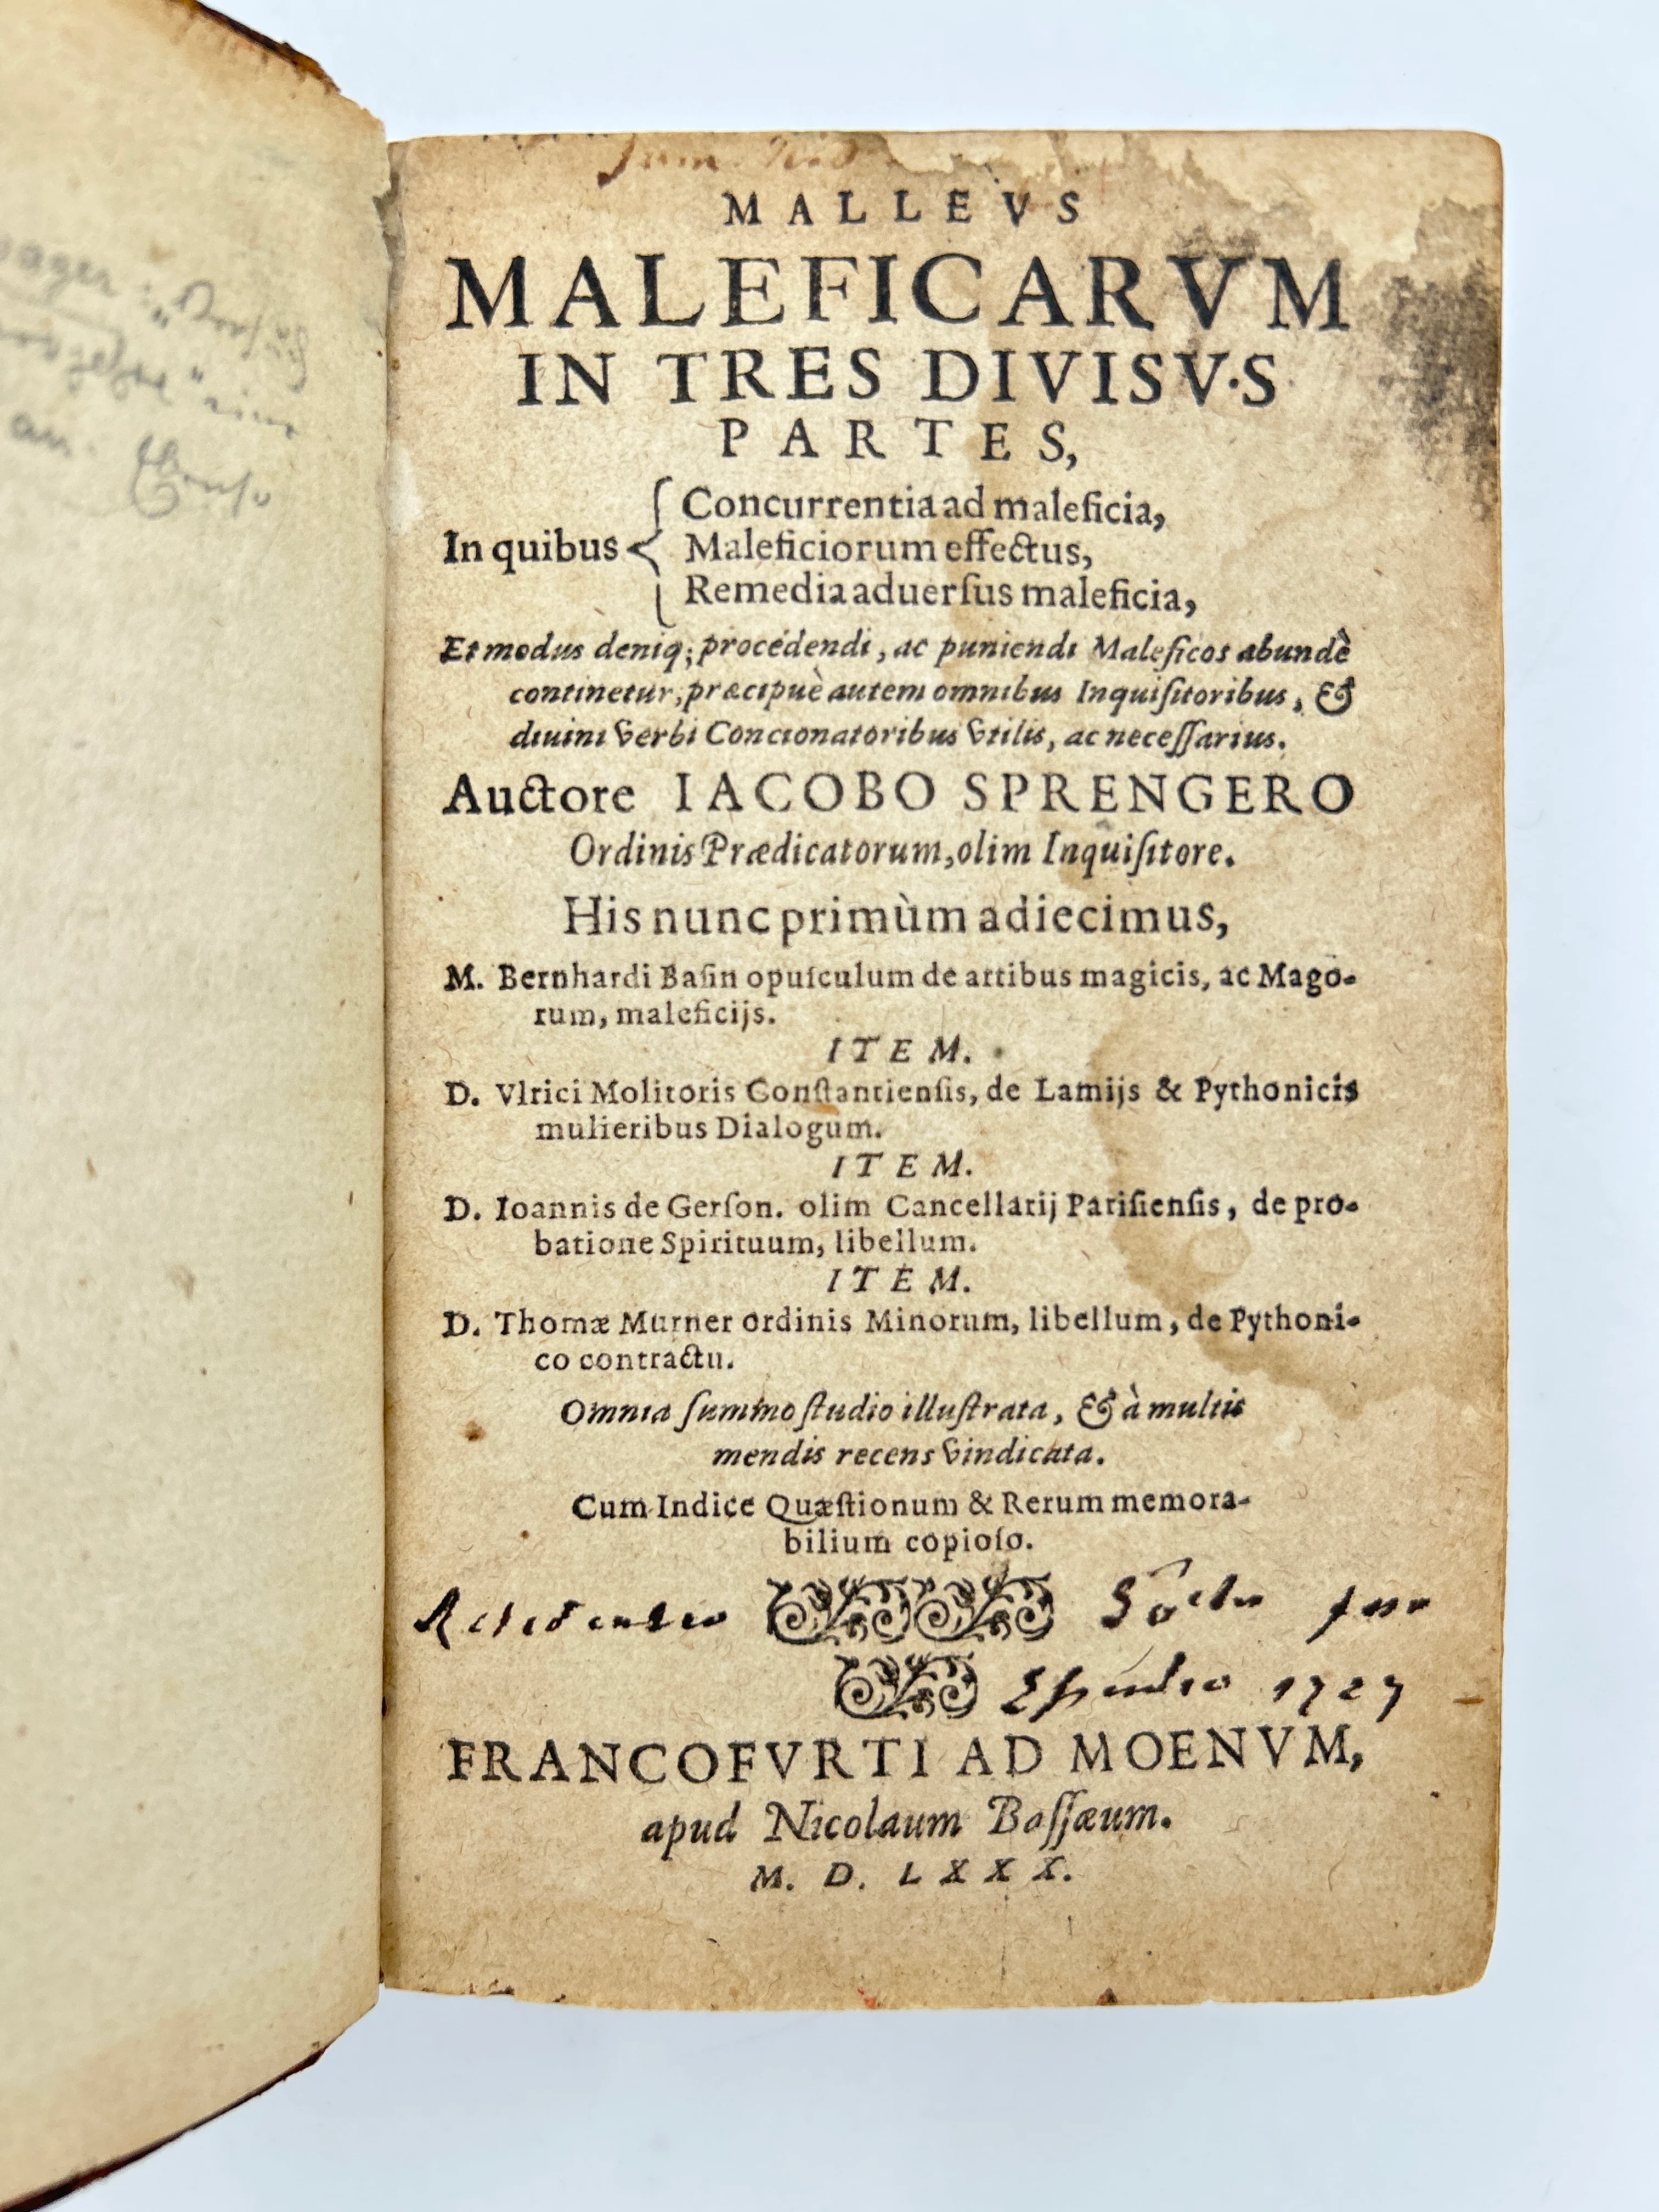 MALLEVS
MALEFICARVM
IN TRES DIVISV·S
PARTES,
In quibus
Concurrentia ad maleficia,
Maleficiorum effectus,
Remedia aduerſus maleficia,
Et modus deniq; procedendi, ac puniendi Maleficos abundè
continetur, præcipuè autem omnibus Inquiſitoribus, &
diuini verbi Concionatoribus vtilis, ac neceſſarius.
Auctore IACOBO SPRENGERO
Ordinis Prædicatorum, olim Inquiſitore.
His nunc primùm adiecimus,
M. Bernhardi Baſin opuſculum de artibus magicis, ac Mago-
rum, maleficijs.
ITEM.
D. Vlrici Molitoris Conſtantienſis, de Lamijs & Pythonicis
mulieribus Dialogum.
ITEM.
D. Ioannis de Gerſon. olim Cancellarij Pariſienſis, de pro-
batione Spirituum, libellum.
ITEM.
D. Thomæ Murner ordinis Minorum, libellum, de Pythoni-
co contractu.
Omnia ſummo ſtudio illuſtrata, & à multis
mendis recens vindicata.
Cum Indice Quæſtionum & Rerum memora-
bilium copioſo.
1727
FRANCOFVRTI AD MOENVM,
apud Nicolaum Baſſæum.
M. D. LXXX.